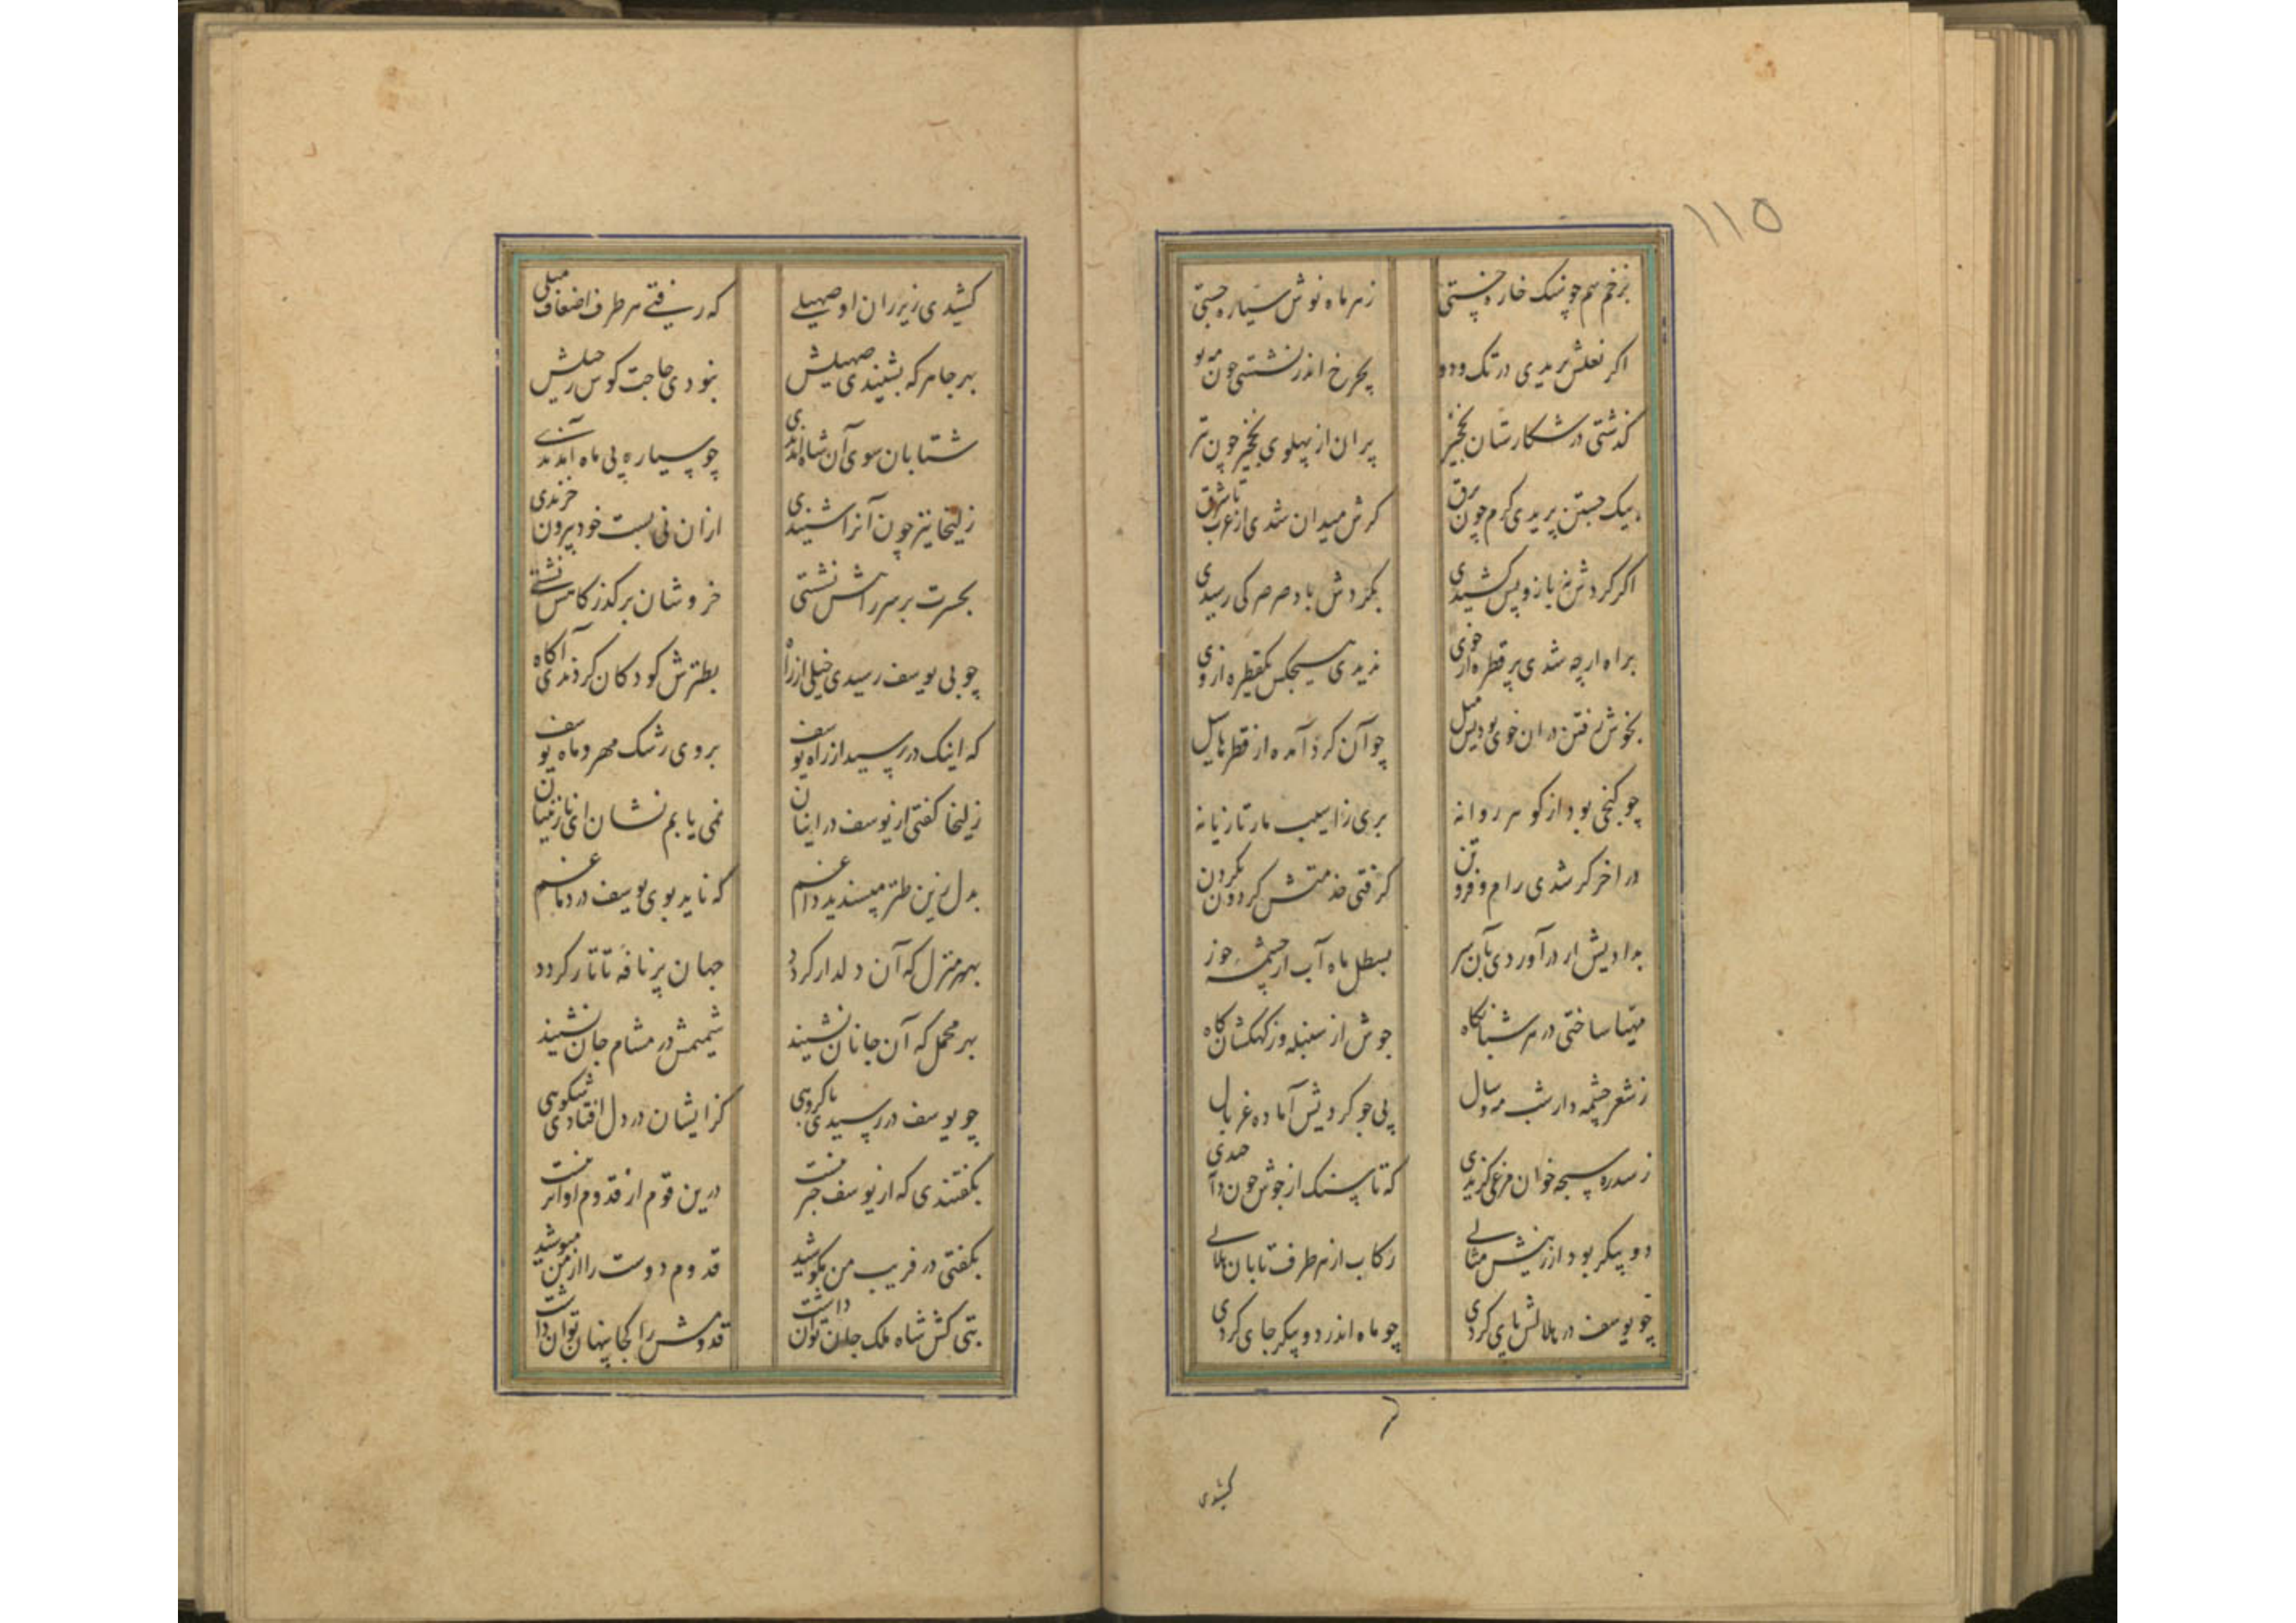 ۱۱۵
بزخم سم چو سنک خاره خستی
ز هر ماه نوش سیاره جستی
اکر نعلش بریدی در تک و دو
بچرخ اندر نشستی چون مه نو
کذشتی در شکارستان نخجیر
پران از پهلوی نخجیر چون تیر
بیک جستن پریدی کرم چون برق
کرش میدان شدی از غرب تا شرق
اکر کردش نه بازو پس کشیدی
بکردش باد صرصر کی رسیدی
براه ار چه شدی پر قطره از خوی
ندیدی هیچکس یکقطره از وی
بخوش رفتن در ان خوی بودیش میل
چو آن کرد آمده از قطرها سیل
چو کنجی بود از کوهر روانه
بری ز اسیب مار تازیانه
در اخر کر شدی رام و فروتن
کرفتی خدمتش کردون بکردن
بدادیش ار در آوردی بآن سر
بسطل ماه آب از چشمه خور
مهیا ساختی در هر شبانکاه
جوش از سنبله وز کهکشان کاه
ز شعر چشمه دار شب مه و سال
پی جو کردیش آماده غربال
ز سدره سبحه خوان مرغی کزیدی
که تا سنک از جوش چون دانه چیدی
دو پیکر بود از زینش مثالی
رکاب از هر طرف تابان هلالی
چو یوسف در هلالش پای کردی
چو ماه اندر دو پیکر جای کردی
کشیدی
کشیدی زیر ران او صهیلی
که رفتی هر طرف اضعاف میلی
بهر جا هر که بشنیدی صهیلش
نبودی حاجت کوس رحیلش
شتابان سوی آن شاه آمدندی
چو سیاره پی ماه آمدندی
زلیخا نیز چون آنرا شنیدی
ازان نی بست خود بیرون خزیدی
بحسرت بر سر راهش نشستی
خروشان بر کذرکاهش نشستی
چو بی یوسف رسیدی خیلی از راه
بطنزش کودکان کردندی آکاه
که اینک در رسید از راه یوسف
بروی رشک مهر و ماه یوسف
زلیخا کفتی از یوسف در اینان
نمی یابم نشان ای نازنینان
بدل زین طنز مپسندید داغم
که ناید بوی یوسف در دماغم
بهر منزل که آن دلدار کردد
جهان پر نافه تاتار کردد
بهر محمل که آن جانان نشیند
شمیمش در مشام جان نشیند
چو یوسف در رسیدی با کروهی
کز ایشان در دل افتادی شکوهی
بکفتندی که از یوسف خبر نیست
درین قوم از قدوم او اثر نیست
بکفتی در فریب من مکوشید
قدوم دوست را از من مپوشید
بتی کش شاه ملک جان توان داشت
قدومش را کجا پنهان توان داشت